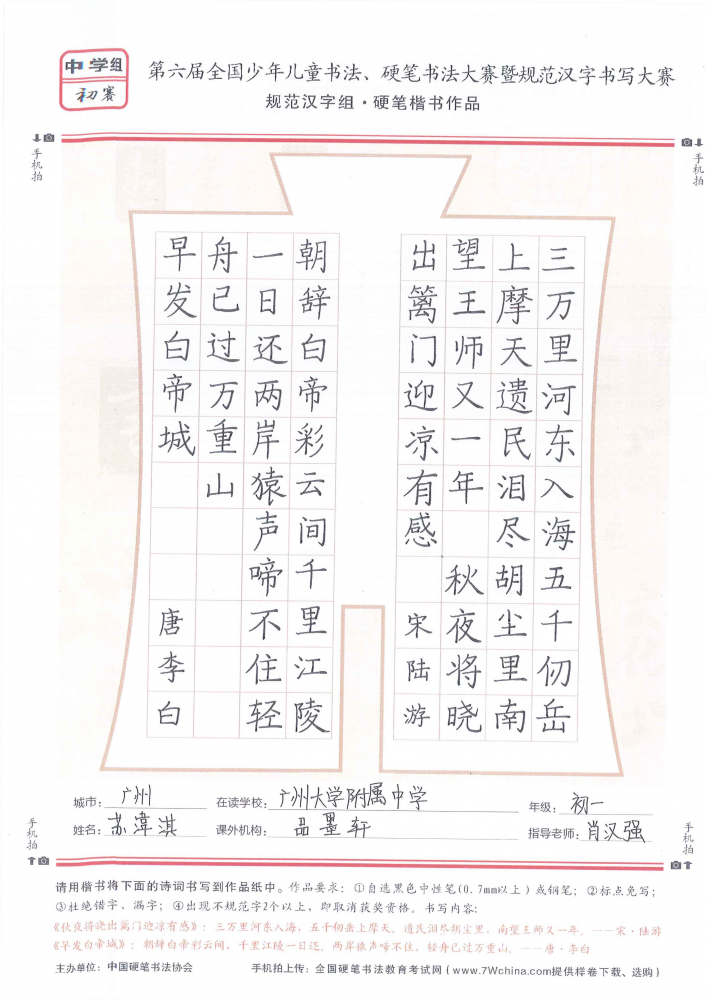 中学组
初赛
第六届全国少年儿童书法、硬笔书法大赛暨规范汉字书写大赛
规范汉字组·硬笔楷书作品
手机拍
手机拍
三万里河东入海五千仞岳
上摩天遗民泪尽胡尘里南
望王师又一年 秋夜将晓
出篱门迎凉有感 宋陆游
朝辞白帝彩云间千里江陵
一日还两岸猿声啼不住轻
舟已过万重山
早发白帝城 唐李白
城市：广州 在读学校：广州大学附属中学 年级：初一
姓名：苏漳淇 课外机构：品墨轩 指导老师：肖汉强
手机拍
手机拍
请用楷书将下面的诗词书写到作品纸中。作品要求：①自选黑色中性笔(0.7mm以上)或钢笔；②标点免写；
③杜绝错字、漏字；④出现不规范字2个以上，即取消获奖资格。书写内容：
《秋夜将晓出篱门迎凉有感》：三万里河东入海，五千仞岳上摩天。遗民泪尽胡尘里，南望王师又一年。——宋·陆游
《早发白帝城》：朝辞白帝彩云间，千里江陵一日还。两岸猿声啼不住，轻舟已过万重山。——唐·李白
主办单位：中国硬笔书法协会 手机拍上传：全国硬笔书法教育考试网(www.7Wchina.com提供样卷下载、选购)